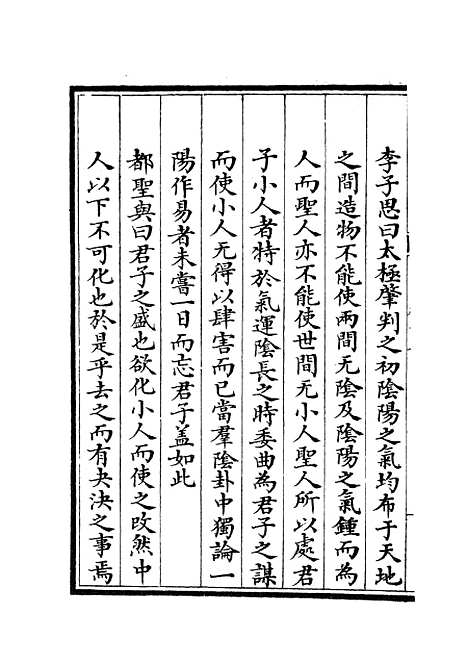 李子思曰太極肇判之初陰陽之氣均布于天地
之間造物不能使兩間无陰及陰陽之氣鍾而為
人而聖人亦不能使世間无小人聖人所以處君
子小人者特於氣運陰長之時委曲為君子之謀
而使小人无得以肆害而已當羣陰卦中獨論一
陽作易者未嘗一日而忘君子盖如此
都聖與曰君子之盛也欲化小人而使之改然中
人以下不可化也於是乎去之而有夬決之事焉